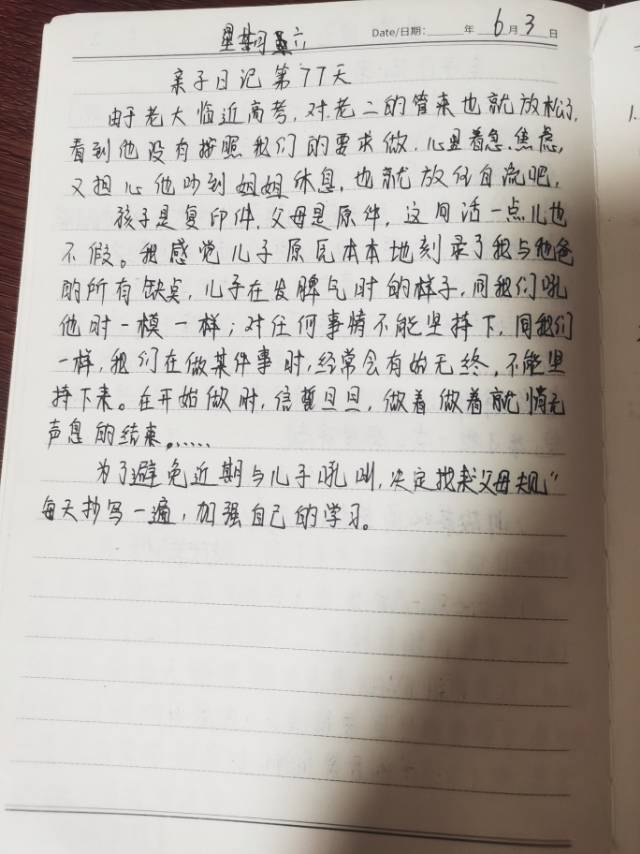 星期六
Date/日期: 年 6 月 3 日
亲子日记 第77天
由于老大临近高考,对老二的管束也就放松了,
看到他没有按照我们的要求做,心里着急.焦虑,
又担心他吵到姐姐休息,也就放任自流吧,
孩子是复印件,父母是原件,这句话一点儿也
不假。我感觉儿子原瓦本本地刻录了我与他爸
的所有缺点,儿子在发脾气时的样子,同我们吼
他时一模一样;对任何事情不能坚持下,同我们
一样,我们在做某件事时,经常会有始无终,不能坚
持下来。在开始做时,信誓旦旦,做着做着就悄无
声息的结束。.....
为了避免近期与儿子吼叫,决定找来父母规"
每天抄写一遍,加强自己的学习。
1.